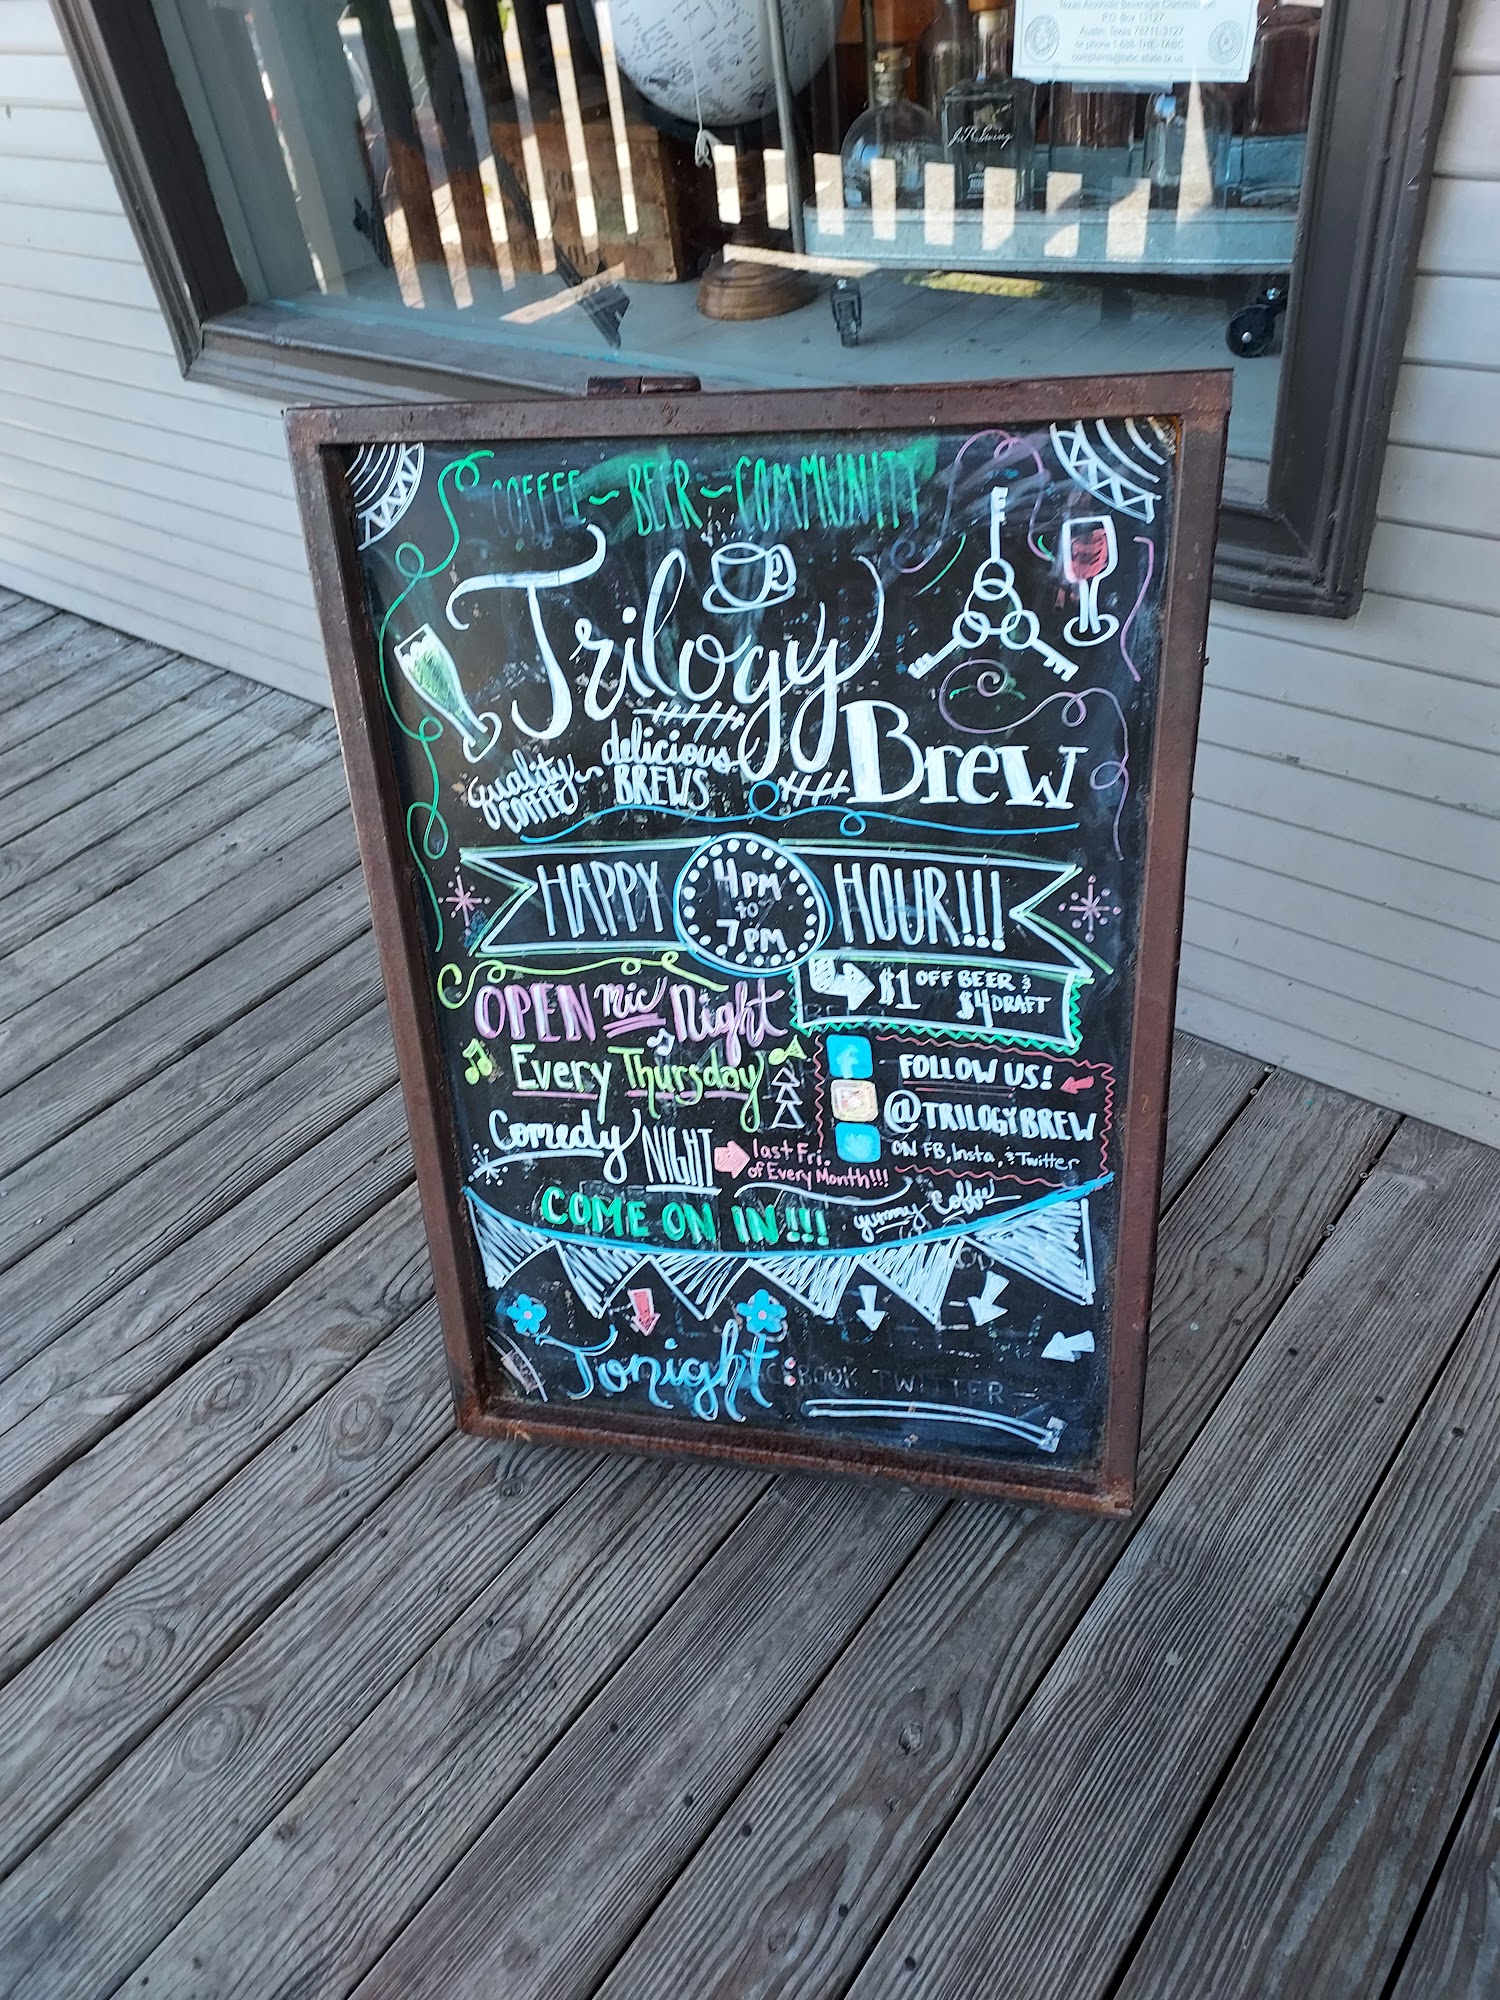 Texas Alcoholic Beverage Commission
P.O. Box 13127
Austin, Texas 78711-3127
or phone 1-888-THE-TABC
complaints@tabc.state.tx.us
J.R. Ewing
COFFEE ~ BEER ~ COMMUNITY
Trilogy
Brew
quality COFFEE ~ delicious BREWS
HAPPY 4PM to 7PM HOUR!!!
$1 OFF BEER & $4 DRAFT
OPEN mic Night
Every Thursday
Comedy NIGHT
last Fri.
of Every Month!!!
FOLLOW US!
@TRILOGYBREW
ON FB, Insta, & Twitter
COME ON IN!!!
yummy Coffee
Tonight:
TWITTER